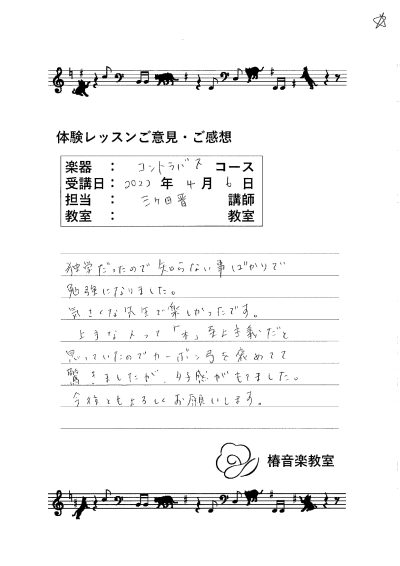 体験レッスンご意見・ご感想
楽器 : コントラバス コース
受講日: 2022 年 4 月 6 日
担当 : 三ケ田 講師
教室 : 教室
独学だったので知らない事ばかりで
勉強になりました。
気さくな先生で楽しかったです。
上手な人って「木」至上主義だと
思っていたのでカーボン弓を褒めてて
驚きましたが、好感がもてました。
今後ともよろしくお願いします。
椿音楽教室